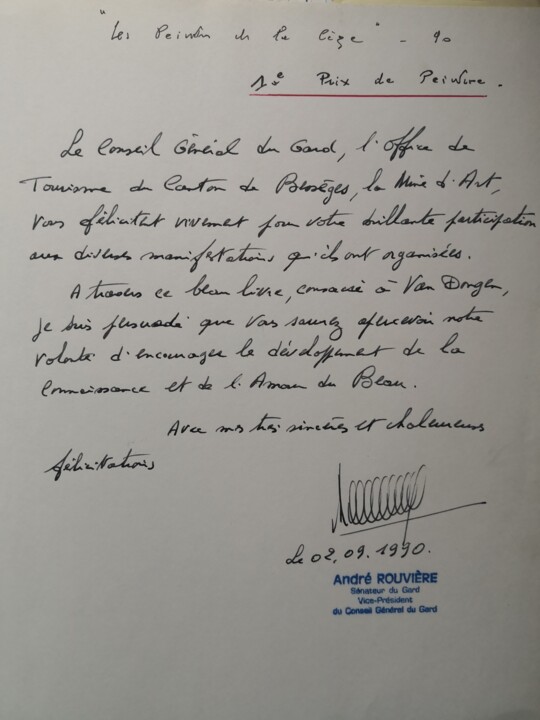 "Les Peintres de la Cèze" - 90
1e Prix de Peinture.
Le Conseil Général du Gard, l'office de
Tourisme du Canton de Bessèges, la Mine d'Art,
vous félicitent vivement pour votre brillante participation
aux diverses manifestations qu'ils ont organisées.
A travers ce beau livre, consacré à Van Dongen,
je suis persuadé que vous saurez apercevoir notre
volonté d'encourager le développement de la
connaissance et de l'Amour du Beau.
Avec mes très sincères et chaleureuses
félicitations
Le 02.09.1990.
André ROUVIÈRE
Sénateur du Gard
Vice-Président
du Conseil Général du Gard